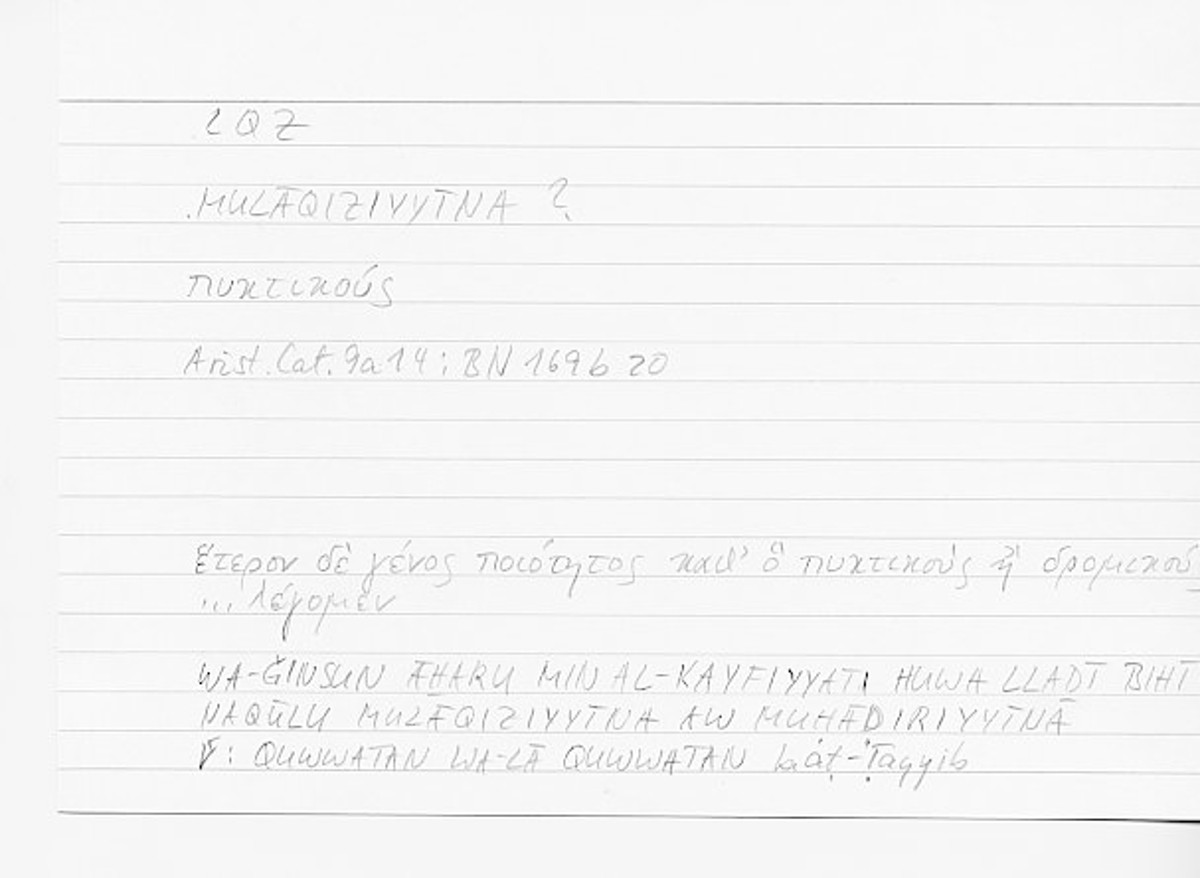 LQZ
MULĀQIZIYYĪNA ?
πυκτικούς
Arist. Cat. 9a14 ; BN 169b 20
ἕτερον δὲ γένος ποιότητος καθ' ὃ πυκτικοὺς ἢ δρομικού
... λέγομεν
WA-ĞINSUN ĀḪARU MIN AL-KAYFIYYATI HUWA LLAḎĪ BIHĪ
NAQŪLU MULĀQIZIYYĪNA AW MUHĀḌIRIYYĪNA
: QUWWATAN WA-LĀ QUWWATAN